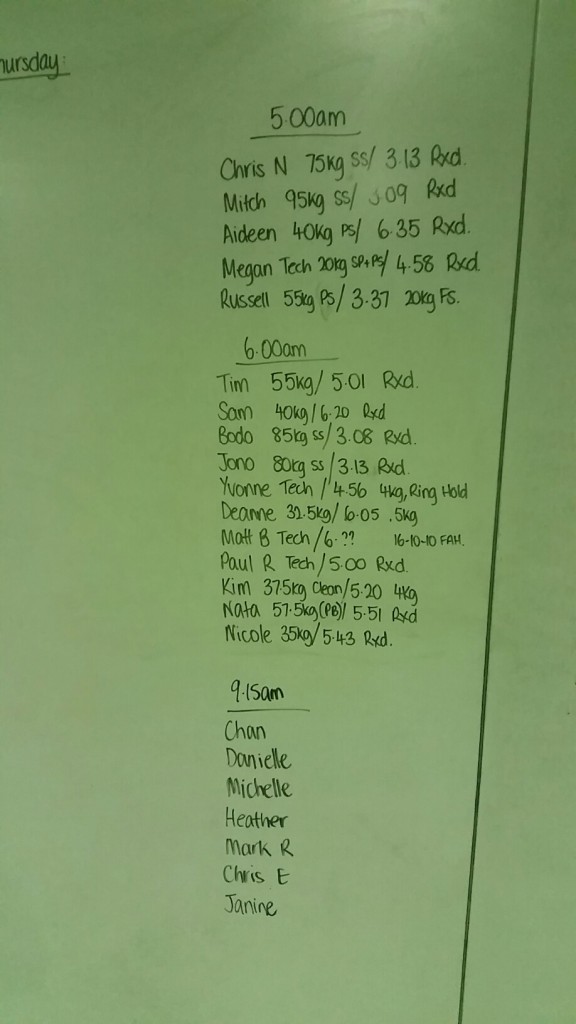 hursday:
5.00am
Chris N 75kg SS/ 3.13 Rxd.
Mitch 95kg SS/ 3.09 Rxd
Aideen 40kg PS/ 6.35 Rxd.
Megan Tech 20kg SP+PS/ 4.58 Rxd.
Russell 55kg PS/ 3.37 20kg FS.
6.00am
Tim 55kg/ 5.01 Rxd.
Sam 40kg/6.20 Rxd
Bodo 85kg SS/3.08 Rxd.
Jono 80kg SS/3.13 Rxd.
Yvonne Tech /4.56 4kg, Ring Hold
Deanne 32.5kg/ 6.05 .5kg
Matt B Tech /6.?? 16-10-10 FAH.
Paul R Tech/5.00 Rxd.
Kim 37.5kg Clean/5.20 4kg
Nata 57.5kg(PB)/ 5.51 Rxd
Nicole 35kg/5.43 Rxd.
9.15am
Chan
Danielle
Michelle
Heather
Mark R
Chris E
Janine